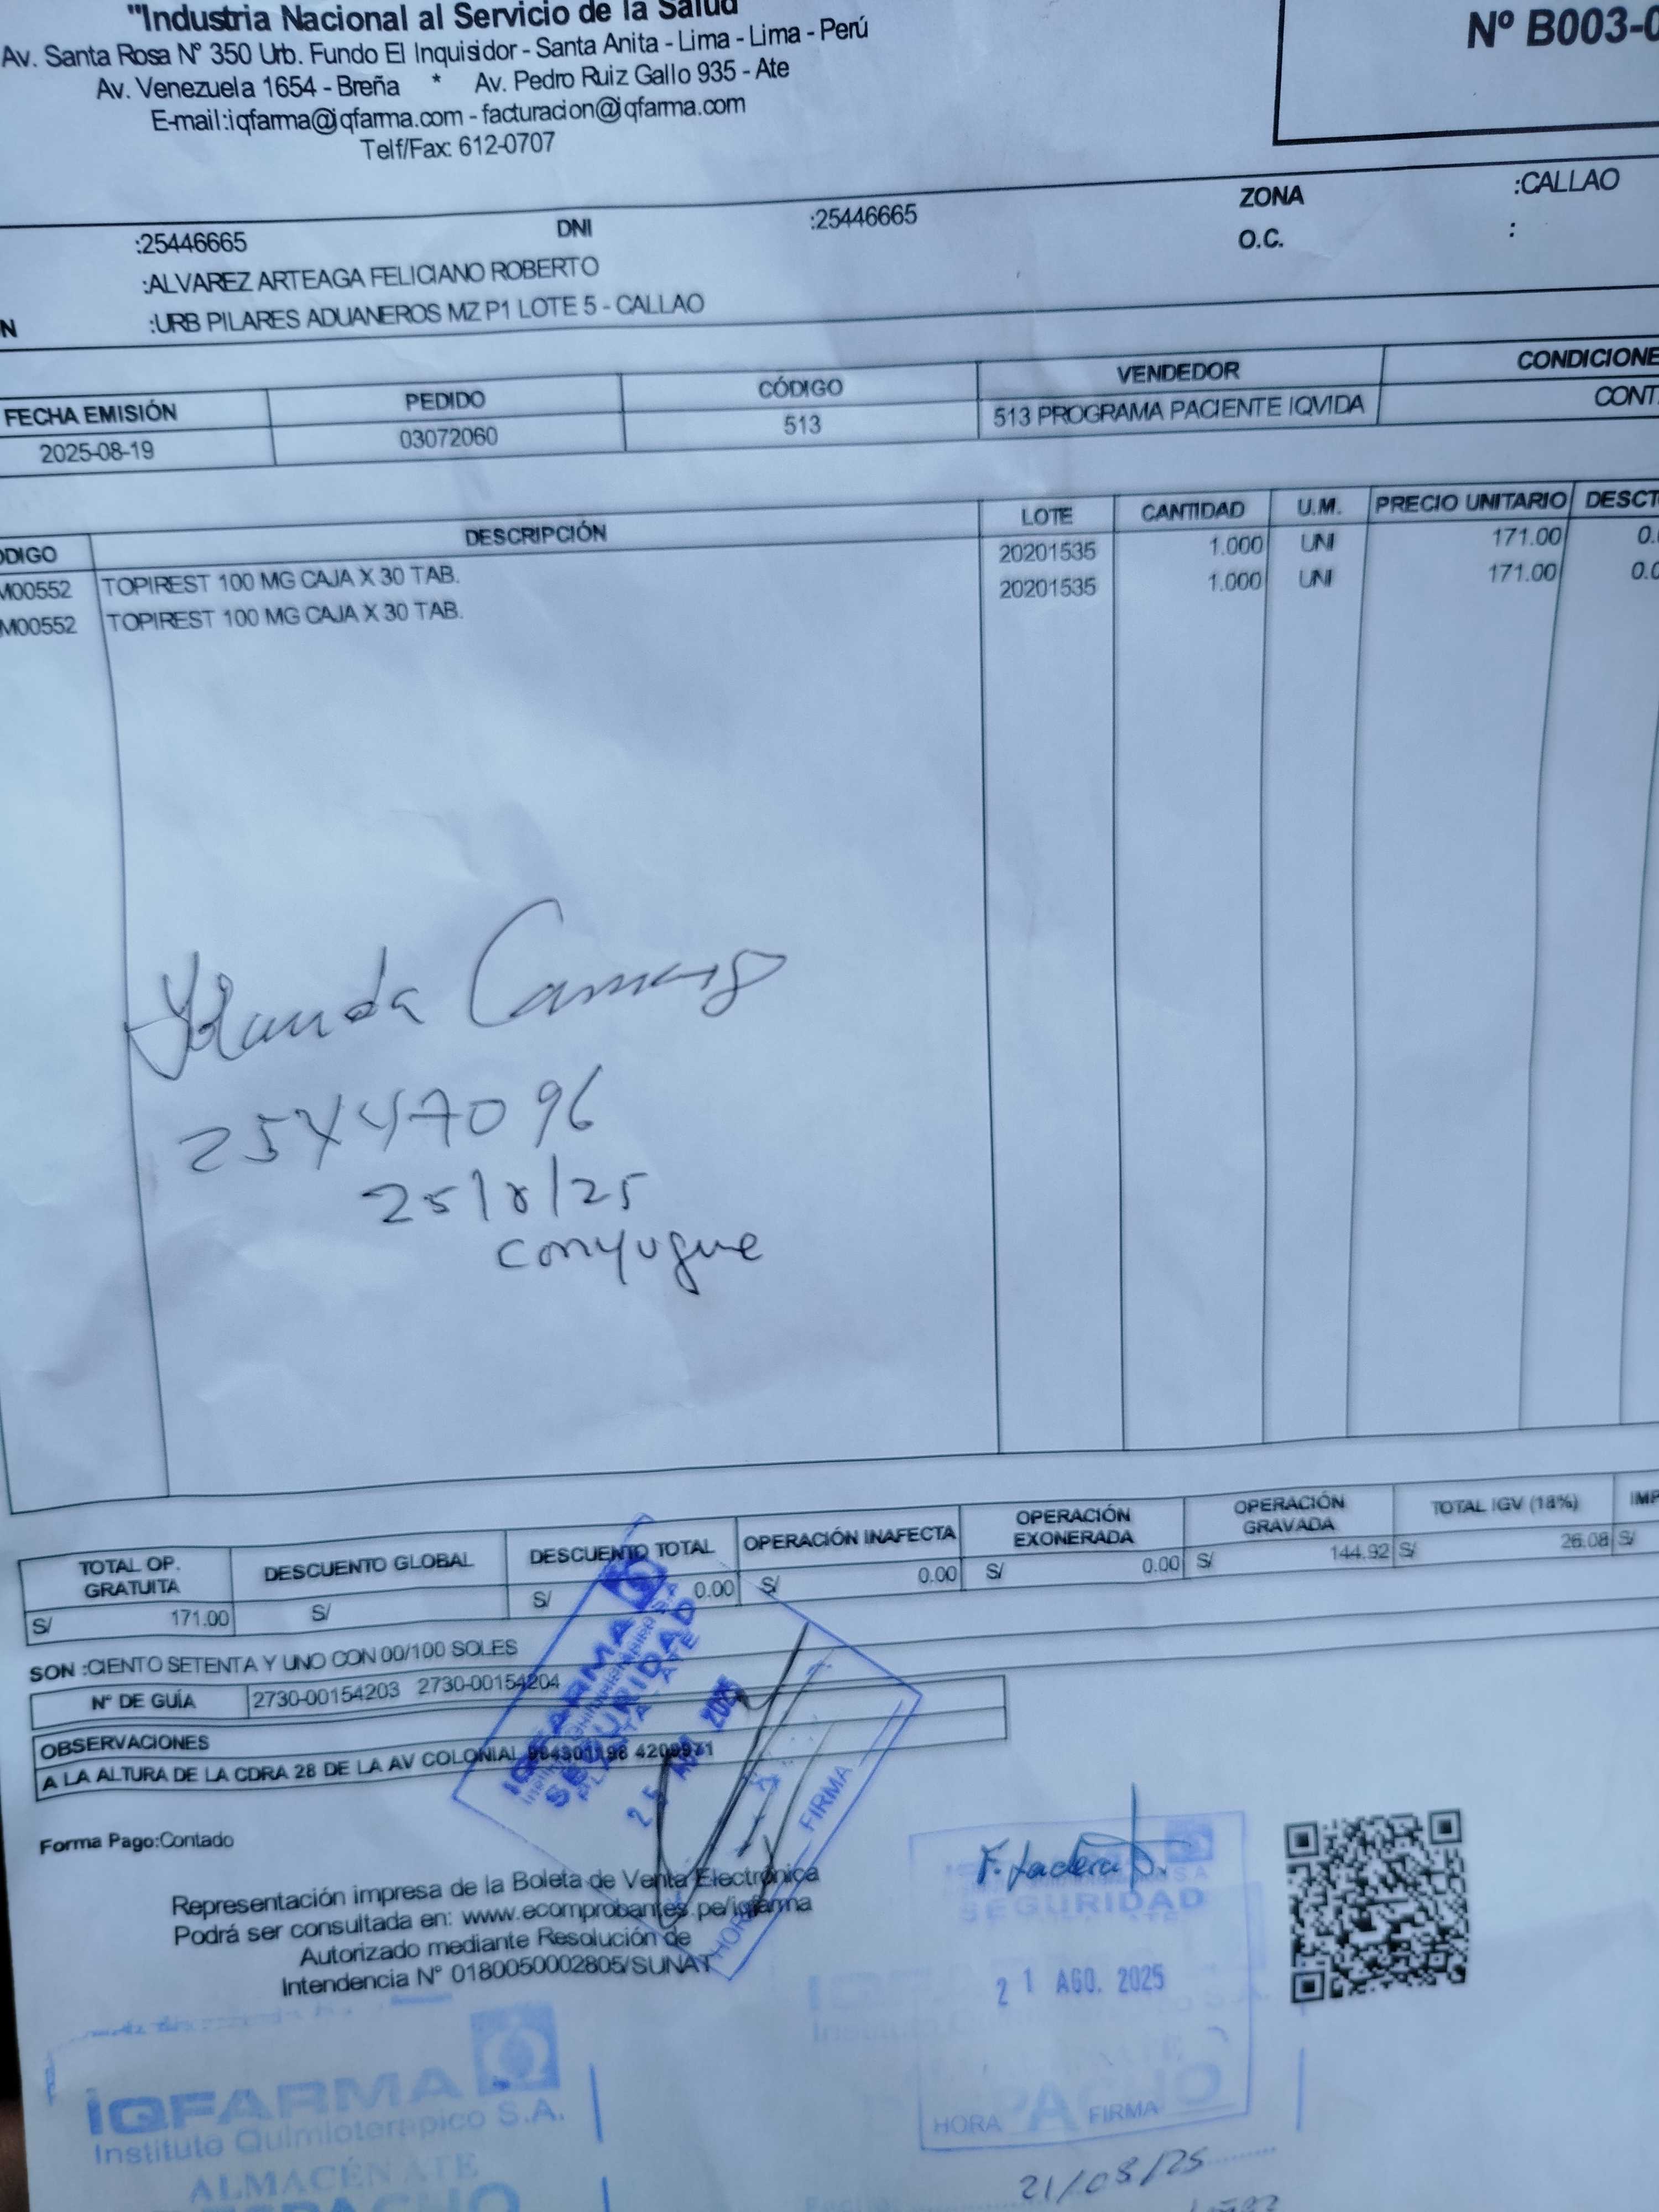 "Industria Nacional al Servicio de la Salud
Av. Santa Rosa N° 350 Urb. Fundo El Inquisidor - Santa Anita - Lima - Lima - Perú
Av. Venezuela 1654 - Breña * Av. Pedro Ruiz Gallo 935 - Ate
E-mail:iqfarma@iqfarma.com - facturacion@iqfarma.com
Telf/Fax: 612-0707
Nº B003-0
:25446665 DNI :25446665 ZONA :CALLAO
:ALVAREZ ARTEAGA FELICIANO ROBERTO O.C. :
N :URB PILARES ADUANEROS MZ P1 LOTE 5 - CALLAO
FECHA EMISIÓN PEDIDO CÓDIGO VENDEDOR CONDICIONE
2025-08-19 03072060 513 513 PROGRAMA PACIENTE IQVIDA CONT
ODIGO DESCRIPCIÓN LOTE CANTIDAD U.M. PRECIO UNITARIO DESCT
M00552 TOPIREST 100 MG CAJA X 30 TAB. 20201535 1.000 UNI 171.00 0.
M00552 TOPIREST 100 MG CAJA X 30 TAB. 20201535 1.000 UNI 171.00 0.0
Yolanda
25447096
25/8/25
conyugue
TOTAL OP. GRATUITA DESCUENTO GLOBAL DESCUENTO TOTAL OPERACIÓN INAFECTA OPERACIÓN EXONERADA OPERACIÓN GRAVADA TOTAL IGV (18%) IMP
S/ 171.00 S/ S/ 0.00 S/ 0.00 S/ 0.00 S/ 144.92 S/ 26.08 S/
SON :CIENTO SETENTA Y UNO CON 00/100 SOLES
N° DE GUÍA 2730-00154203 2730-00154204
OBSERVACIONES
A LA ALTURA DE LA CDRA 28 DE LA AV COLONIAL
IQFARMA
SEGURIDAD
25 AGO 2025
HORA FIRMA
Forma Pago:Contado
Representación impresa de la Boleta de Venta Electrónica
Podrá ser consultada en: www.ecomprobantes.pe/iqfarma
Autorizado mediante Resolución de
Intendencia N° 0180050002805/SUNAT
SEGURIDAD
21 AGO. 2025
HORA FIRMA
IQFARMA
Instituto Quimioterapico S.A.
ALMACÉN ATE
DESPACHO
21/08/25